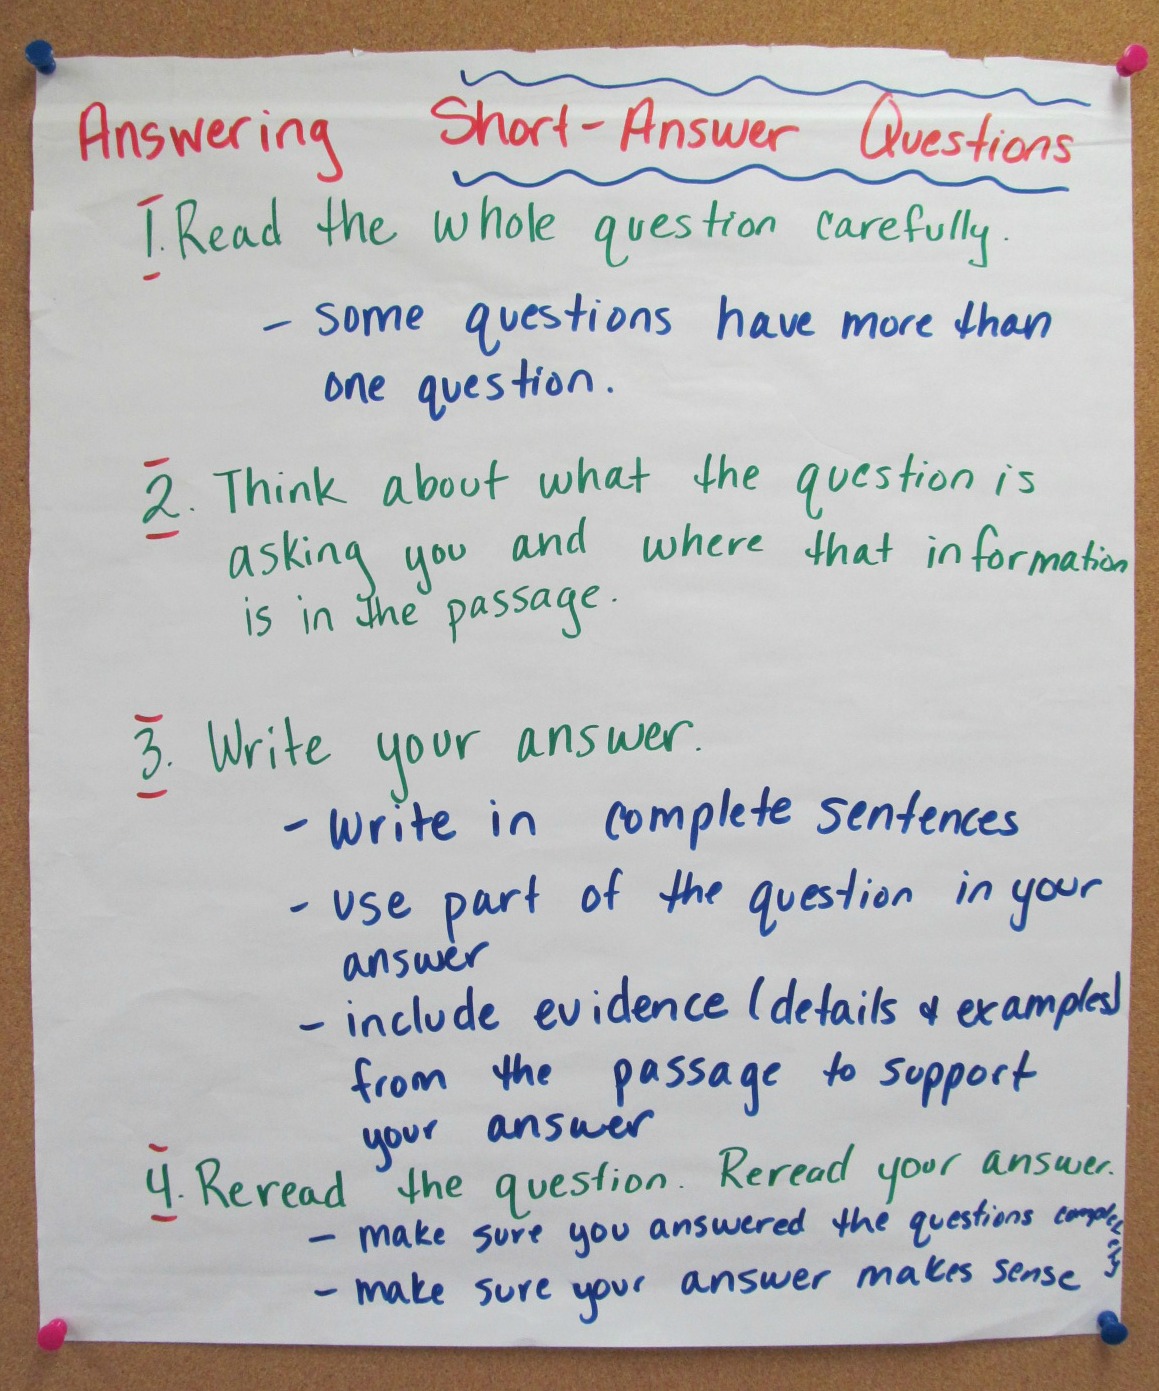 Answering Short-Answer Questions
1. Read the whole question carefully.
- some questions have more than
one question.
2. Think about what the question is
asking you and where that information
is in the passage.
3. Write your answer.
- write in complete sentences
- use part of the question in your
answer
- include evidence (details & examples)
from the passage to support
your answer
4. Reread the question. Reread your answer.
- make sure you answered the questions completely
- make sure your answer makes sense